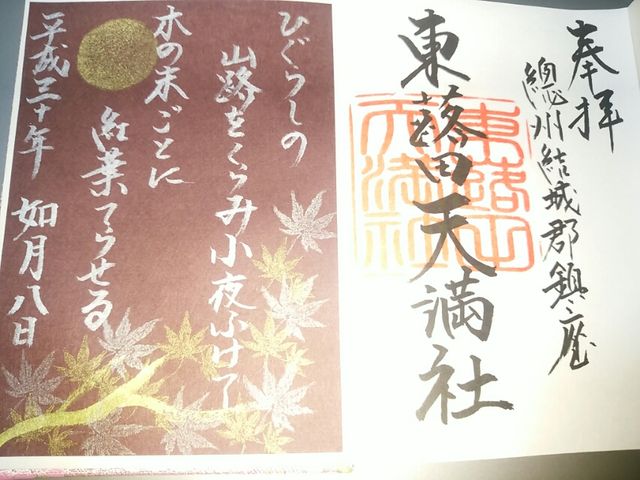 奉拝
總州結城郡鎮座
東蕗田天満社
ひぐらしの
山路をくらみ小夜ふけて
木の末ごとに
紅葉てらせる
平成三十年 如月八日